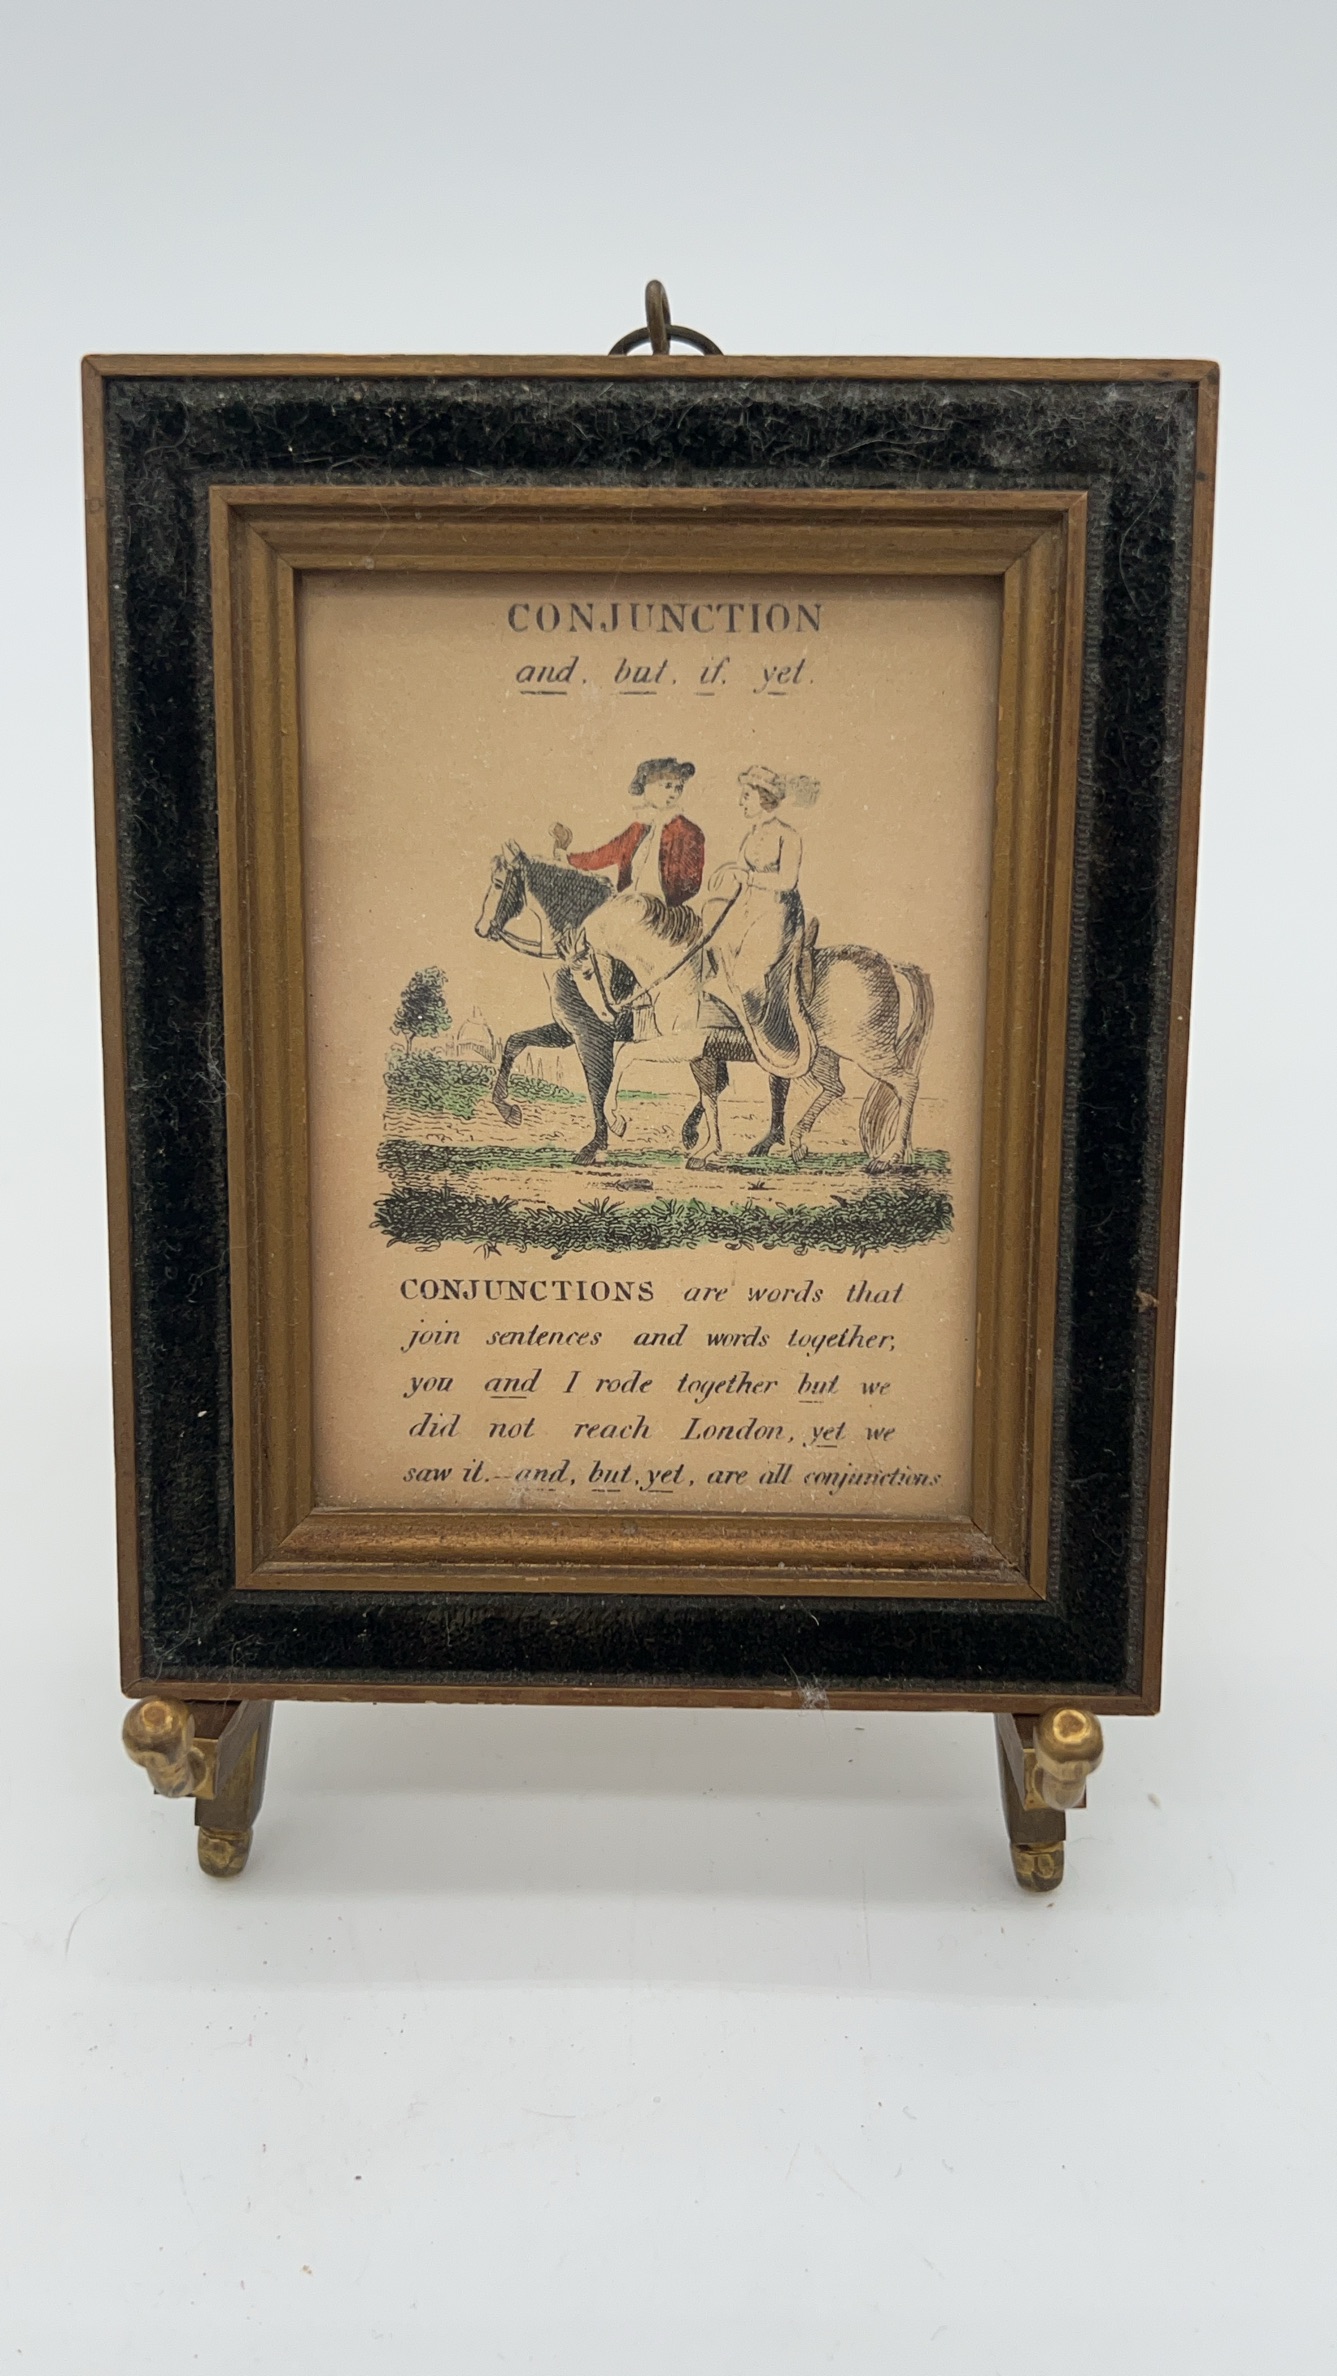 CONJUNCTION
and, but, if, yet.
CONJUNCTIONS are words that
join sentences and words together;
you and I rode together but we
did not reach London, yet we
saw it.—and, but, yet, are all conjunctions